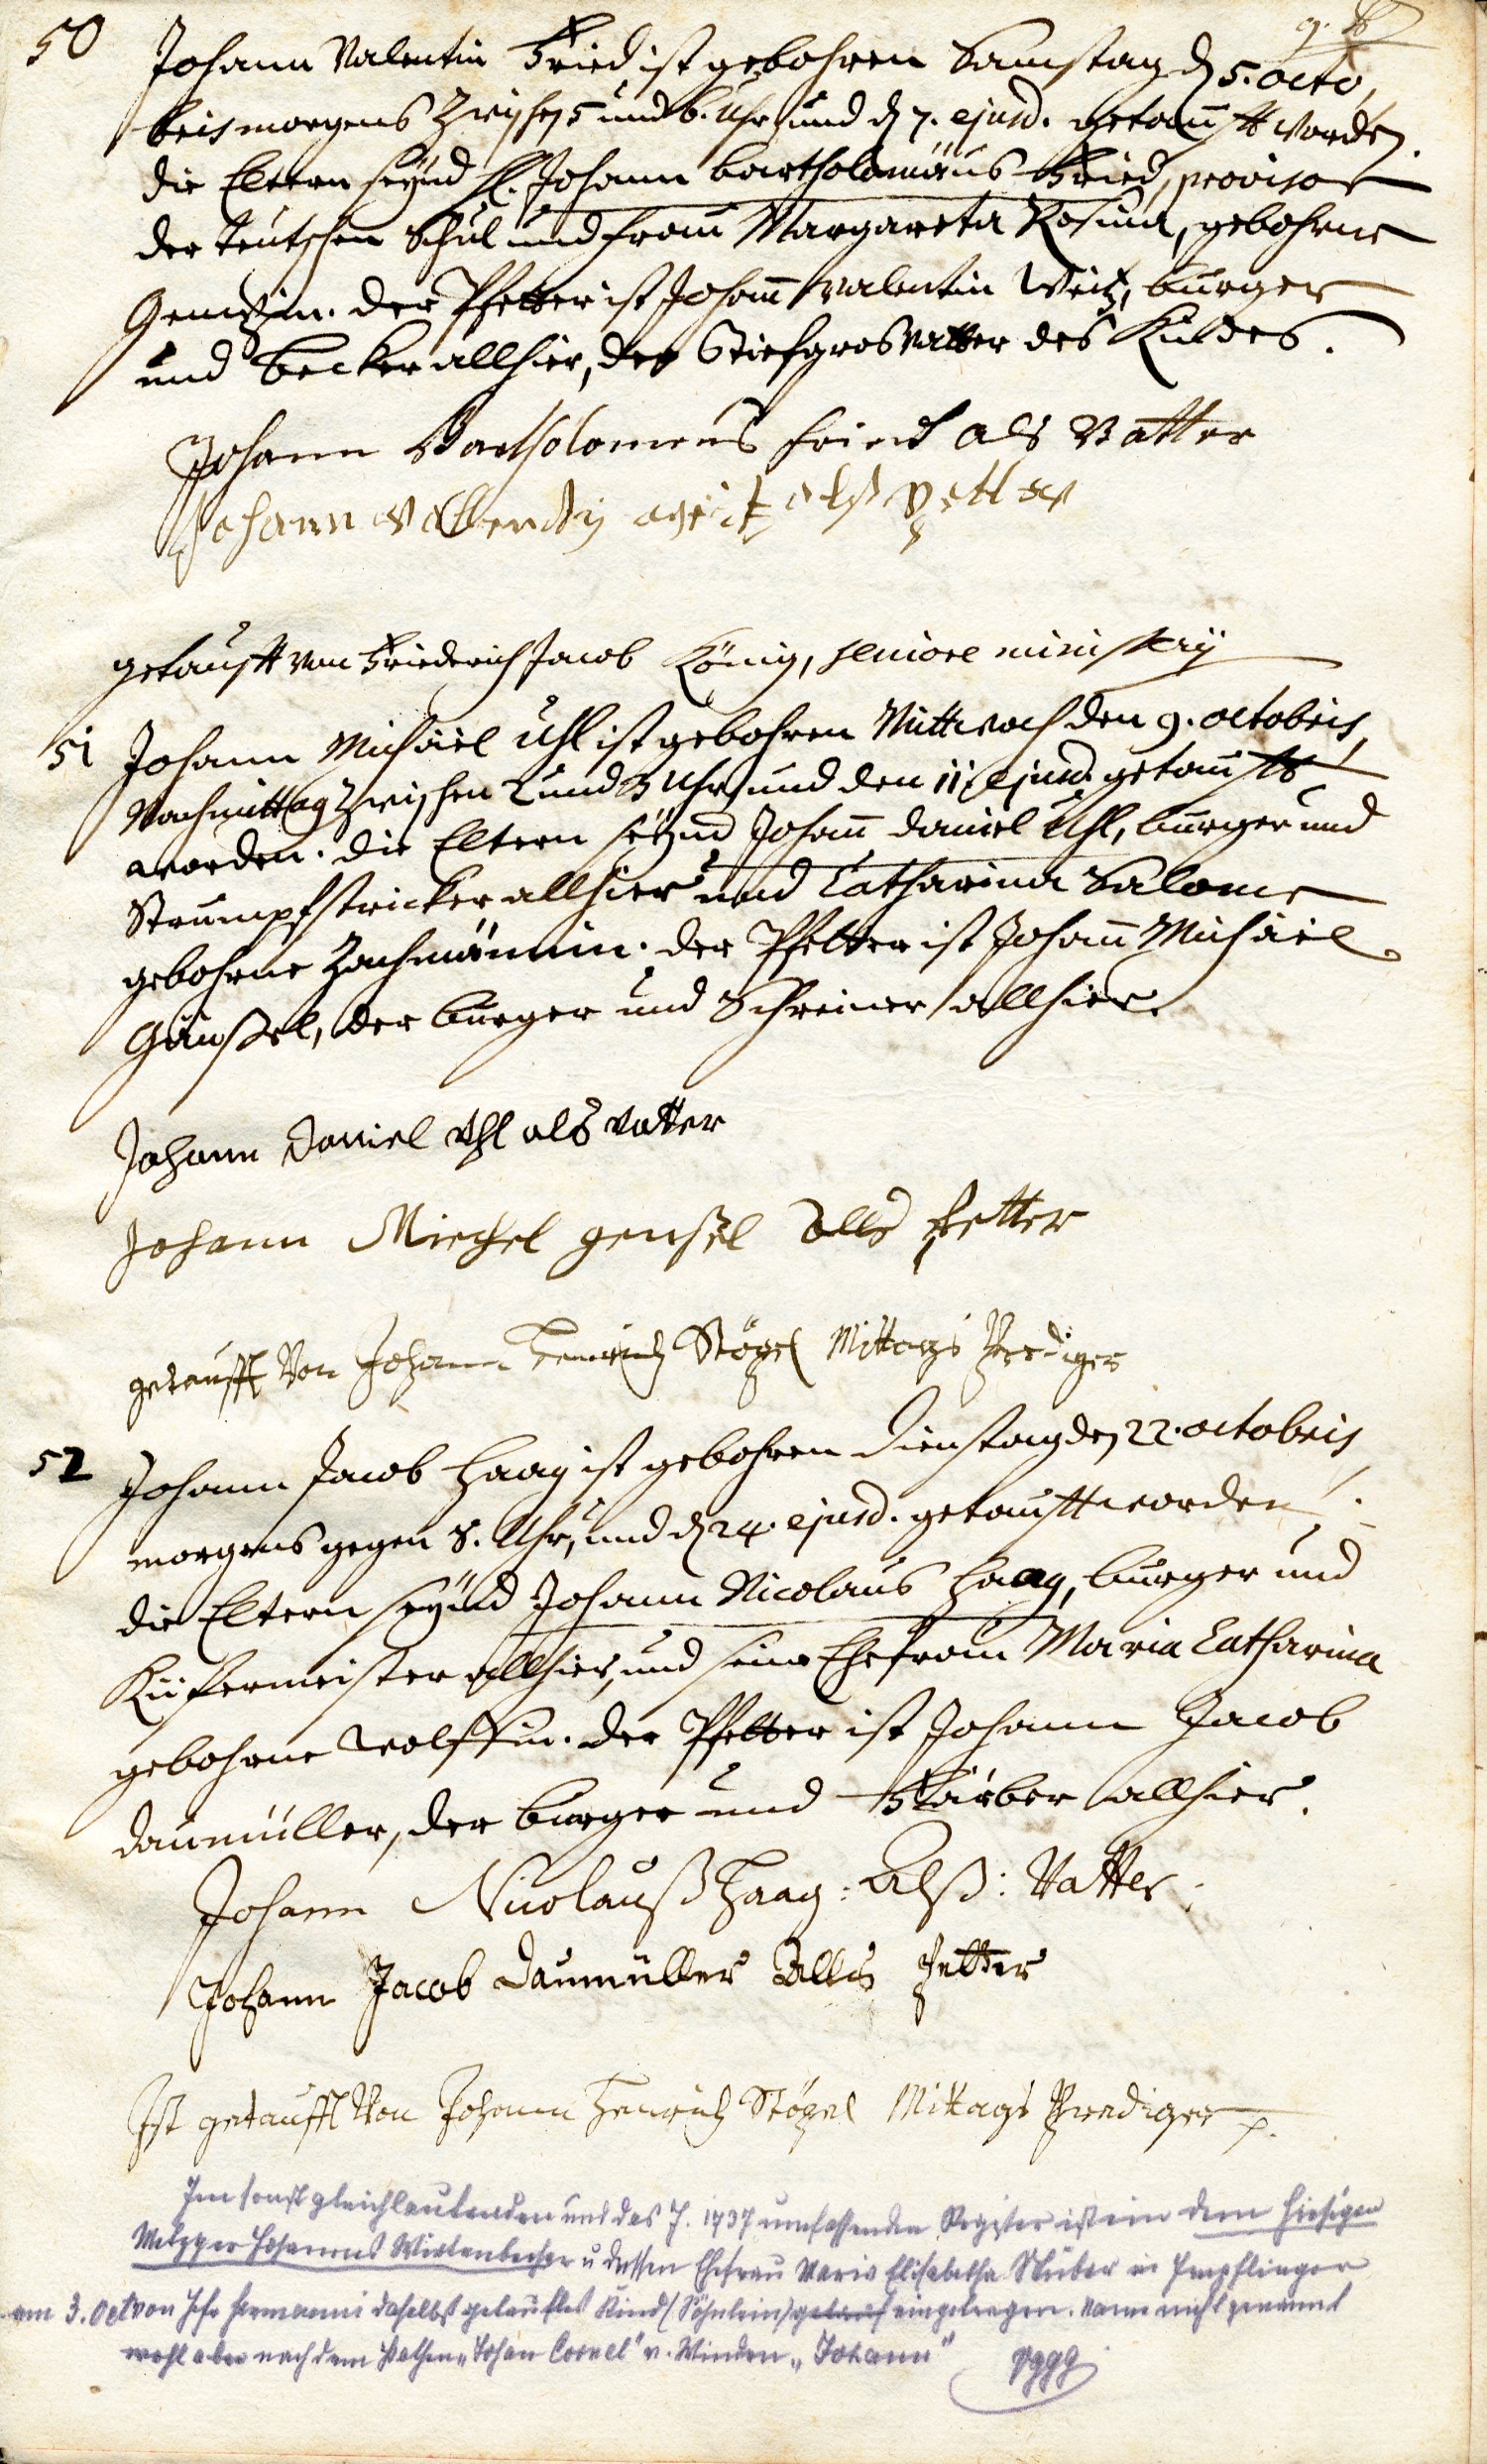 50 Johann Valentin Fried ist gebohren Samstag d 5. octo,
bris morgens zwischen 5 und 6. Uhr und d 7. ejusd. getaufft worden.
die Eltern seynd H. Johann Bartholomäus Fried, provisor
der teutschen Schul und frau Margareta Rosina, gebohrne
der Pfetter ist Johann Valentin Weitz, burger
und becker allhier, der Stiefgrosvatter des Kindes.
Johann Bartholomeus fried als Vatter
Johann Vallendin weitz alß petter
getaufft von Friederich Jacob König, seniore ministerij
51 Johann Michäel Uhl ist gebohren Mittwoch den 9. octobris,
Nachmittag zwischen 2 und 3 Uhr und den 11. ejusd. getaufft
worden. die Eltern seynd Johann Daniel Uhl, burger und
Strumpfstricker allhier und Catharina Salome
gebohrne Zachmännin. der Pfetter ist Johann Michäel
Gänßel, der burger und Schreiner allhier.
Johann Daniel Uhl als vatter
Johann Miechel genßel alls petter
getaufft Von Johann Henrich Stögel Mittags Prediger
52 Johann Jacob Haag ist gebohren Dienstag den 22. octobris,
morgens gegen 8. Uhr, und d 24. ejusd. getaufft worden.
die Eltern seynd Johann Nicolaus Haag, burger und
Küfermeister allhier, und seine Ehefrau Maria Catharina
gebohrne Wolffin. der Pfetter ist Johann Jacob
Daumüller, der burger und Färber allhier.
Johann Nicolauß Haag: Alß: Vatter.
Johann Jacob Daumüller Allß petter
Ist getaufft Von Johann Henrich Stögel Mittags Prediger p.
Im sonst gleichlautenden und das J. 1737 umfassenden Register ist ein dem hiesigen
Metzger Johannes Wirtenbecher u dessen Ehefrau Maria Elisabetha Stüber in Impflingen
am 3. Oct von Pfr Hermanni daselbst getauftes Kind (Söhnlein) getauf eingetragen. Name nicht genannt
wohl aber nach dem Pathen „Johan Cornel" v. Winden „Johann"